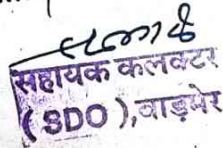 सहायक कलक्टर
(SDO),वाड़मेर